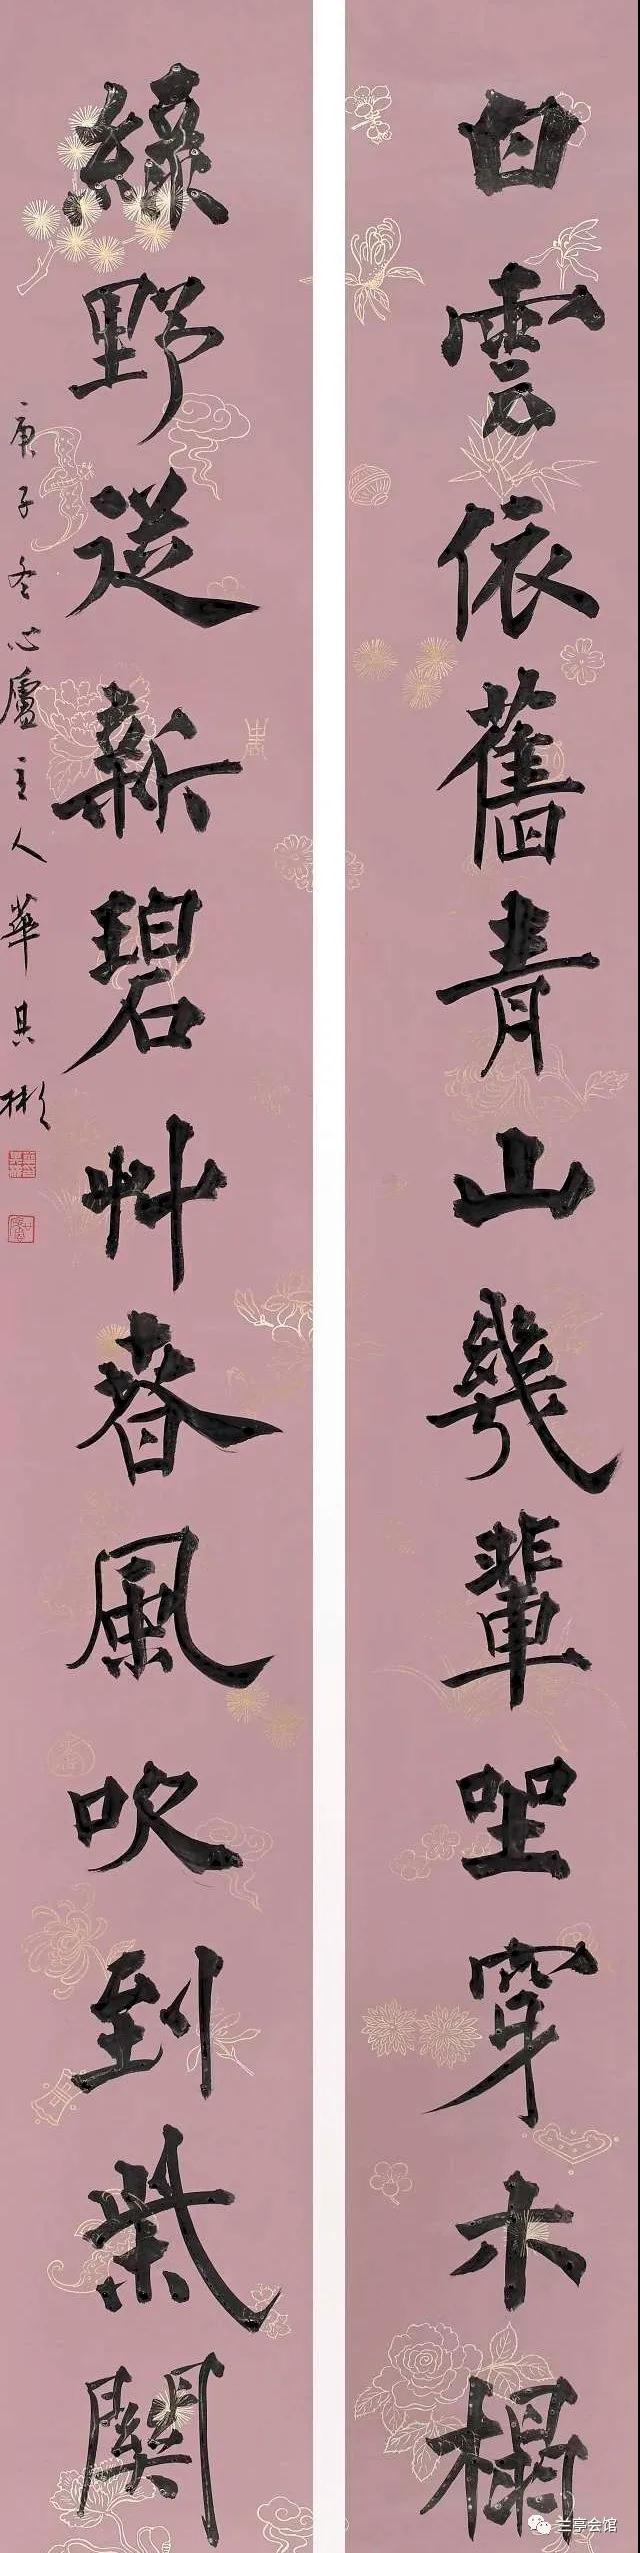 白雲依舊青山幾輩坐穿木榻
綠野從新碧艸春風吹到柴關
庚子冬心廬主人華其彬
兰亭会馆